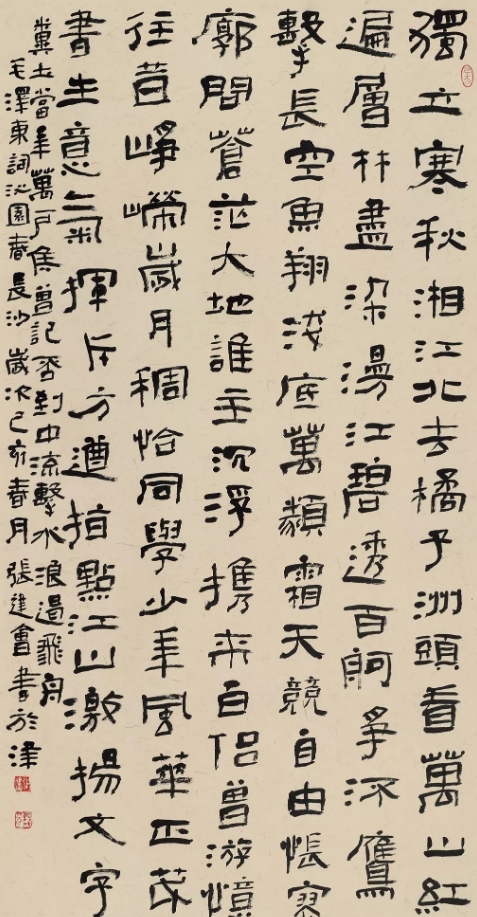 獨立寒秋湘江北去橘子洲頭看萬山紅
遍層林盡染漫江碧透百舸爭流鷹
擊長空魚翔淺底萬類霜天競自由悵寥
廓問蒼茫大地誰主沉浮携來百侶曾游憶
往昔崢嶸歲月稠恰同學少年風華正茂
書生意氣揮斥方遒指點江山激揚文字
糞土當年萬戶侯曾記否到中流擊水浪遏飛舟
毛澤東詞沁園春長沙歲次己亥春月張進會書於津